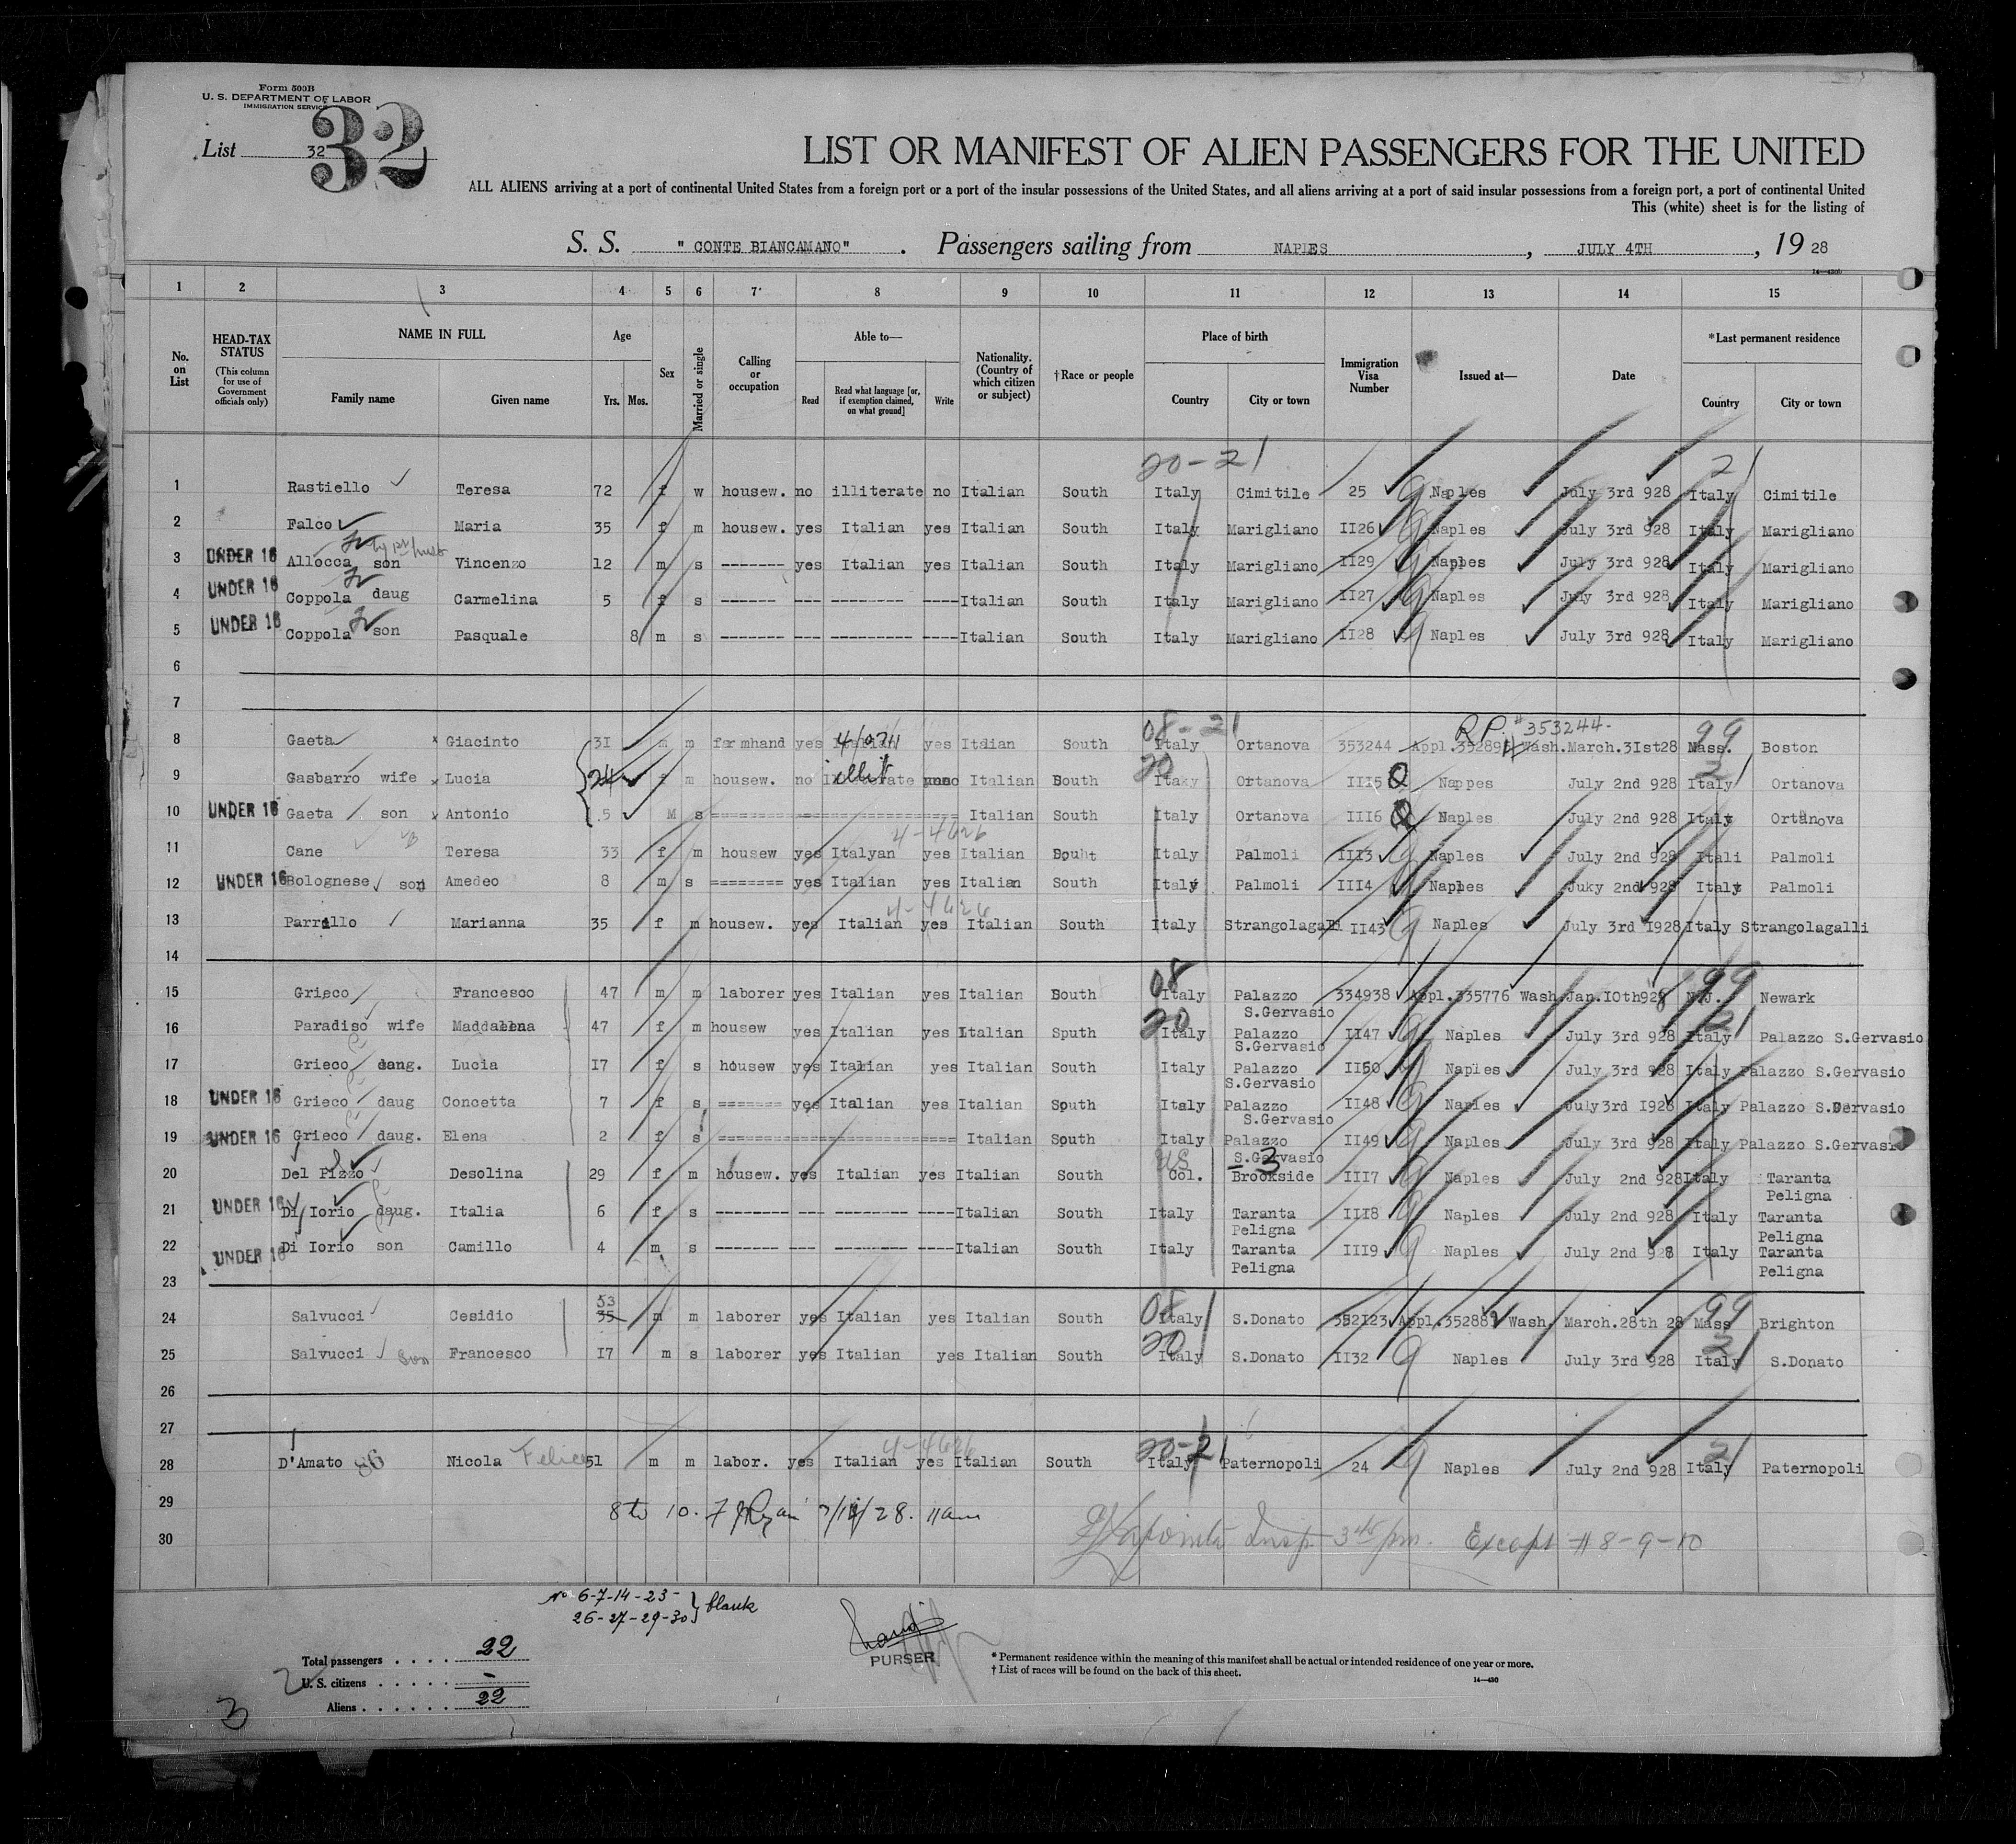 Form 500B
U. S. DEPARTMENT OF LABOR
IMMIGRATION SERVICE
List 32 32
LIST OR MANIFEST OF ALIEN PASSENGERS FOR THE UNITED
ALL ALIENS arriving at a port of continental United States from a foreign port or a port of the insular possessions of the United States, and all aliens arriving at a port of said insular possessions from a foreign port, a port of continental United
This (white) sheet is for the listing of
S. S. " CONTE BIANCAMANO" . Passengers sailing from NAPLES , JULY 4TH , 19 28
1 2 3 4 5 6 7 8 9 10 11 12 13 14 15
No. on List HEAD-TAX STATUS (This column for use of Government officials only) NAME IN FULL Family name Given name Age Yrs. Mos. Sex Married or single Calling or occupation Able to— Read Read what language [or, if exemption claimed, on what ground] Write Nationality. (Country of which citizen or subject) †Race or people Place of birth Country City or town Immigration Visa Number Issued at— Date *Last permanent residence Country City or town
20-21 21
1 Rastiello Teresa 72 f w housew. no illiterate no Italian South Italy Cimitile 25 Naples July 3rd 928 Italy Cimitile
2 Falco Maria 35 f m housew. yes Italian yes Italian South Italy Marigliano II26 Naples July 3rd 928 Italy Marigliano
3 UNDER 16 Allocca son Vincenzo 12 m s ------- yes Italian yes Italian South Italy Marigliano II29 Naples July 3rd 928 Italy Marigliano
4 UNDER 16 Coppola daug Carmelina 5 f s ------ -- --------- ---- Italian South Italy Marigliano II27 Naples July 3rd 928 Italy Marigliano
5 UNDER 16 Coppola son Pasquale 8 m s ------- -- --------- ---- Italian South Italy Marigliano II28 Naples July 3rd 928 Italy Marigliano
6
7
08-21 RP.#353244- 99
8 Gaeta x Giacinto 31 m m farmhand yes Italian yes Italian South Italy Ortanova 353244 Appl.352895 Wash. March.3Ist28 Mass. Boston
20 21
9 Gasbarro wife x Lucia 24 f m housew. no illit no Italian South Italy Ortanova III5 Nappes July 2nd 928 Italy Ortanova
10 UNDER 16 Gaeta son x Antonio 5 M s ========================= Italian South Italy Ortanova III6 Naples July 2nd 928 Italy Ortanova
4-4626
11 Cane Teresa 33 f m housew yes Italyan yes Italian South Italy Palmoli III3 Naples July 2nd 928 Itali Palmoli
12 UNDER 16 Bolognese son Amedeo 8 m s ======== yes Italian yes Italian South Italy Palmoli III4 Naples Juky 2nd 928 Italy Palmoli
4-4626
13 Parrello Marianna 35 f m housew. yes Italian yes Italian South Italy Strangolagalli II43 Naples July 3rd I928 Italy Strangolagalli
14
08 99
15 Grieco Francesco 47 m m laborer yes Italian yes Italian South Italy Palazzo S.Gervasio 334938 Appl.335776 Wash Jan.I0th928 N.J. Newark
20 21
16 Paradiso wife Maddalena 47 f m housew yes Italian yes Italian Sputh Italy Palazzo S.Gervasio II47 Naples July 3rd 928 Italy Palazzo S.Gervasio
17 Grieco daug. Lucia I7 f s housew yes Italian yes Italian South Italy Palazzo S.Gervasio II50 Naples July 3rd 928 Italy Palazzo S.Gervasio
18 UNDER 16 Grieco daug Concetta 7 f s ======= yes Italian yes Italian South Italy Palazzo S.Gervasio II48 Naples July3rd I928 Italy Palazzo S.Gervasio
19 UNDER 16 Grieco daug. Elena 2 f s ========================= Italian South Italy Palazzo S.Gervasio II49 Naples July 3rd 928 Italy Palazzo S.Gervasio
US -3
20 Del Pizzo Desolina 29 f m housew. yes Italian yes Italian South Col. Brookside III7 Naples July 2nd 928 Italy Taranta Peligna
21 UNDER 16 Di Iorio daug. Italia 6 f s ------- --- -------- ---- Italian South Italy Taranta Peligna III8 Naples July 2nd 928 Italy Taranta Peligna
22 UNDER 16 Di Iorio son Camillo 4 m s ------- --- -------- ---- Italian South Italy Taranta Peligna III9 Naples July 2nd 928 Italy Taranta Peligna
23
08 99
24 Salvucci Cesidio 53 35 m m laborer yes Italian yes Italian South Italy S.Donato 352I23 Appl.352889 Wash. March.28th 28 Mass Brighton
20 21
25 Salvucci Son Francesco I7 m s laborer yes Italian yes Italian South Italy S.Donato II32 Naples July 3rd 928 Italy S.Donato
26
27
4-4626 20-21 21
28 D'Amato 86 Nicola Felice 51 m m labor. yes Italian yes Italian South Italy Paternopoli 24 Naples July 2nd 928 Italy Paternopoli
29 8 to 10. 7/ /28. 11am
30 Insp. 3 45 pm. Except # 8-9-10
No 6-7-14-23-
26-27-29-30 } blank
PURSER
Total passengers . . . . 22
U. S. citizens . . . . . -
Aliens . . . . . . 22
2
3
* Permanent residence within the meaning of this manifest shall be actual or intended residence of one year or more.
† List of races will be found on the back of this sheet.
14—430